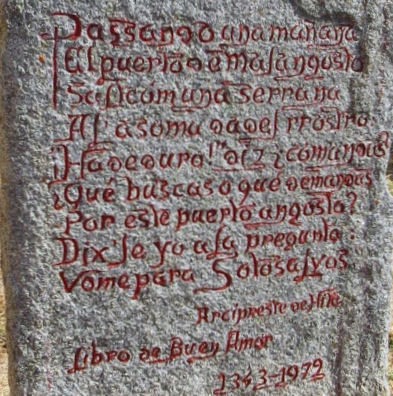 Passando una mañana
El puerto de Malangosto
Salteom una serrana
A la somada del rrostro.
¡Hadeduro! diz ¿comandas?
¿Qué buscas o qué demandas
Por este puerto angosto?
Dix'le yo a la pregunta:
Vome para Sotosalvos.
Arcipreste de Hita
Libro de Buen Amor
1343-1972